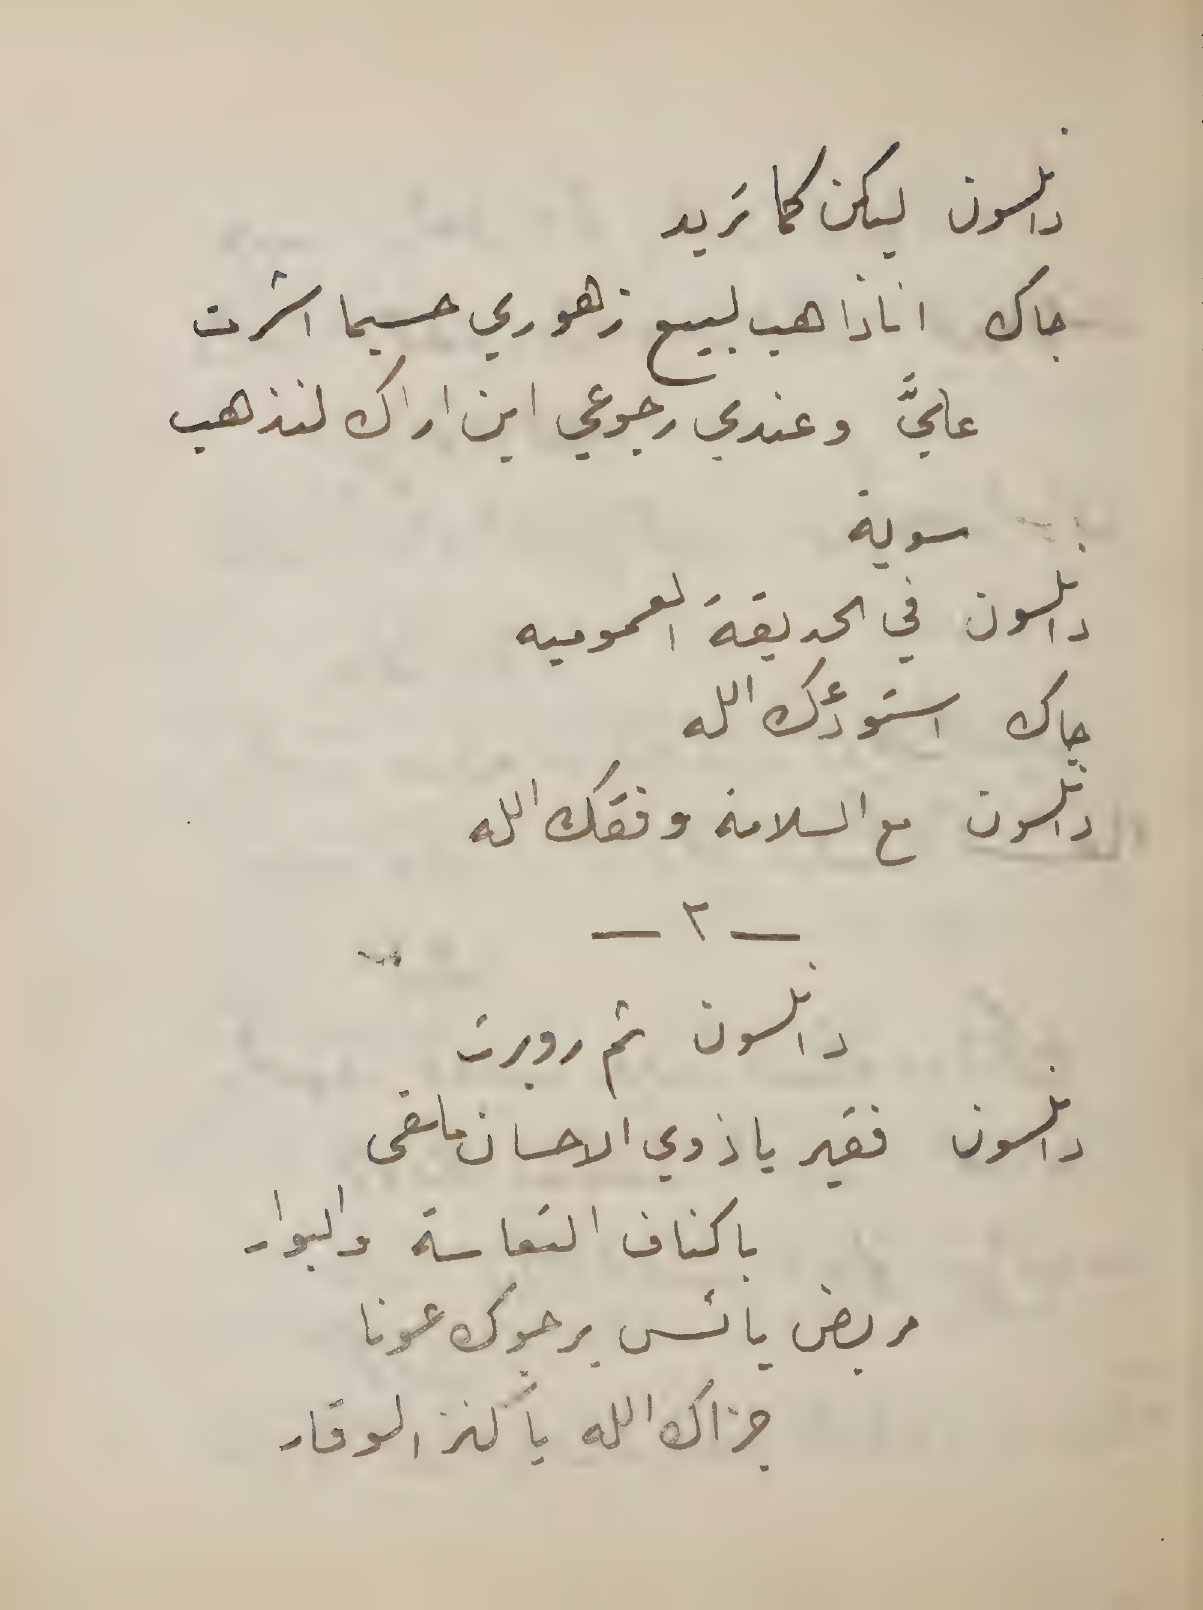 دانلسون ليكن كما تريد
جاك انا ذاهب لبيع زهوري حسبما اشرت
عليَّ وعندي رجوعي اين اراك لنذهب
سوية
دانلسون في الحديقة العموميه
جاك استودئك الله
دانلسون مع السلامة وفقك الله
— ٢ —
دانلسون ثم روبرت
دانلسون فقير يا ذوي الاحسان ملقى
باكناف التعاسة والبوار
مريض يائس يرجوك عونا
جزاك الله يا كنز الوقار